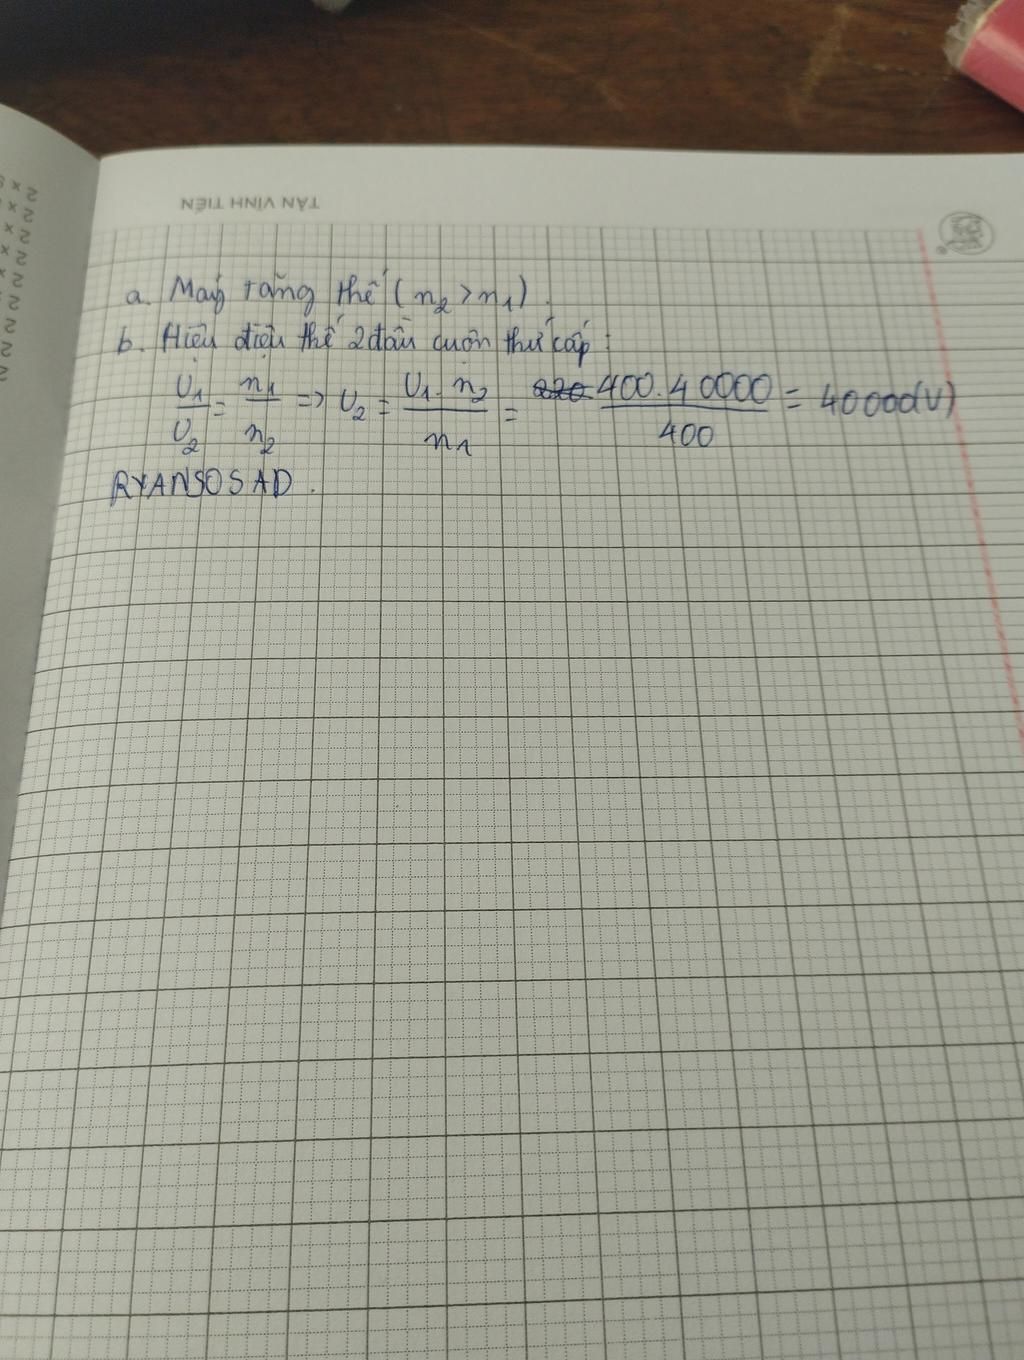 TÂN VĨNH TIẾN
a. Máy tăng thế (n₂ > n₁).
b. Hiệu điện thế 2 đầu cuộn thứ cấp:
U₁/U₂ = n₁/n₂ => U₂ = U₁.n₂/n₁ = 400.40000/400 = 40000(V)
RYANSOSAD.